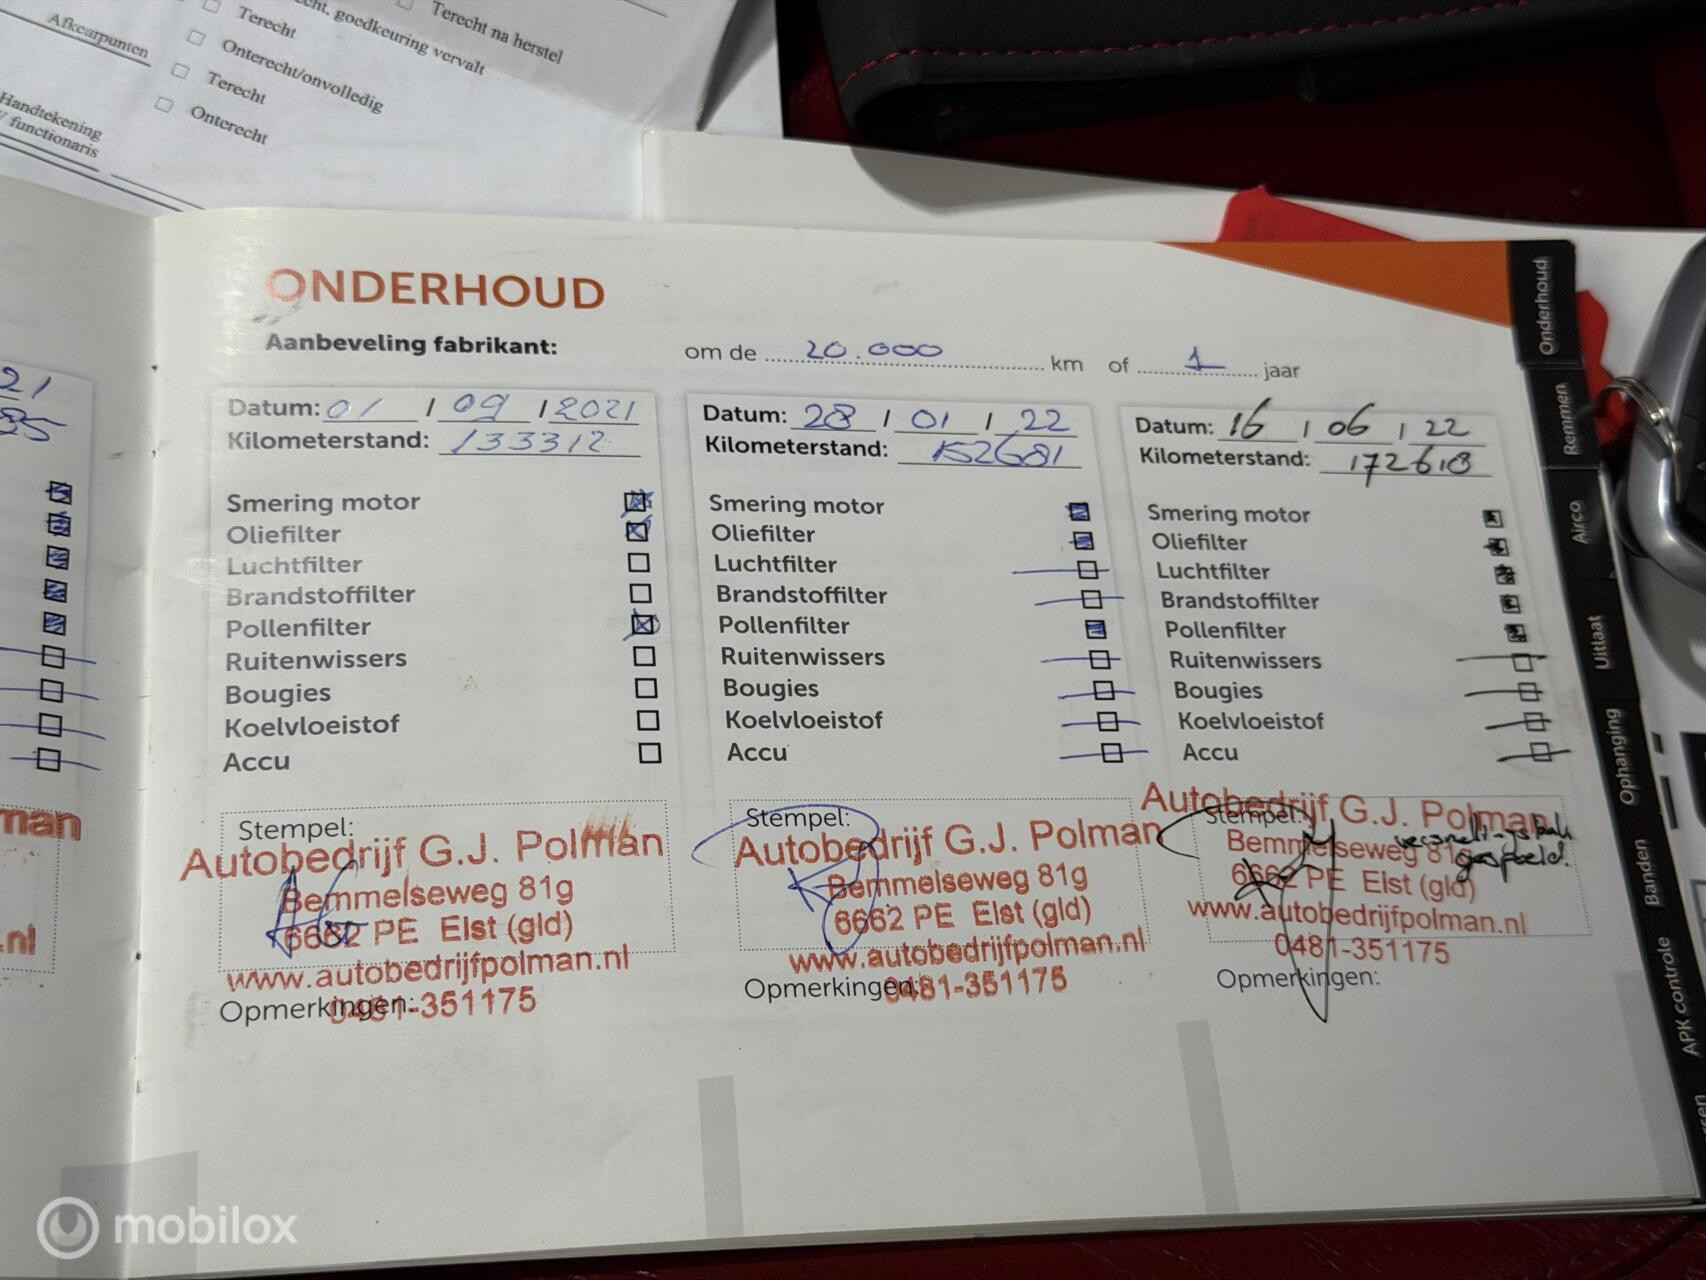 Afkearpunten
Terecht
Onterecht/onvolledig
Terecht
Onterecht
goedkeuring vervalt
Terecht na herstel
Handtekening
functionaris
21
man
.nl
ONDERHOUD
Aanbeveling fabrikant:
om de 20.000 km of 1 jaar
Datum: 01 / 09 / 2021
Kilometerstand: 133312
Smering motor
Oliefilter
Luchtfilter
Brandstoffilter
Pollenfilter
Ruitenwissers
Bougies
Koelvloeistof
Accu
Stempel:
Autobedrijf G.J. Polman
Bemmelseweg 81g
6662 PE Elst (gld)
www.autobedrijfpolman.nl
0481-351175
Opmerkingen:
Datum: 28 / 01 / 22
Kilometerstand: 152681
Smering motor
Oliefilter
Luchtfilter
Brandstoffilter
Pollenfilter
Ruitenwissers
Bougies
Koelvloeistof
Accu
Stempel:
Autobedrijf G.J. Polman
Bemmelseweg 81g
6662 PE Elst (gld)
www.autobedrijfpolman.nl
0481-351175
Opmerkingen:
Datum: 16 / 06 / 22
Kilometerstand: 172618
Smering motor
Oliefilter
Luchtfilter
Brandstoffilter
Pollenfilter
Ruitenwissers
Bougies
Koelvloeistof
Accu
Stempel:
Autobedrijf G.J. Polman
Bemmelseweg 81g
6662 PE Elst (gld)
www.autobedrijfpolman.nl
0481-351175
versnellingsbak
gespoeld.
Opmerkingen:
Onderhoud
Remmen
Airco
Uitlaat
Ophanging
Banden
APK controle
mobilox